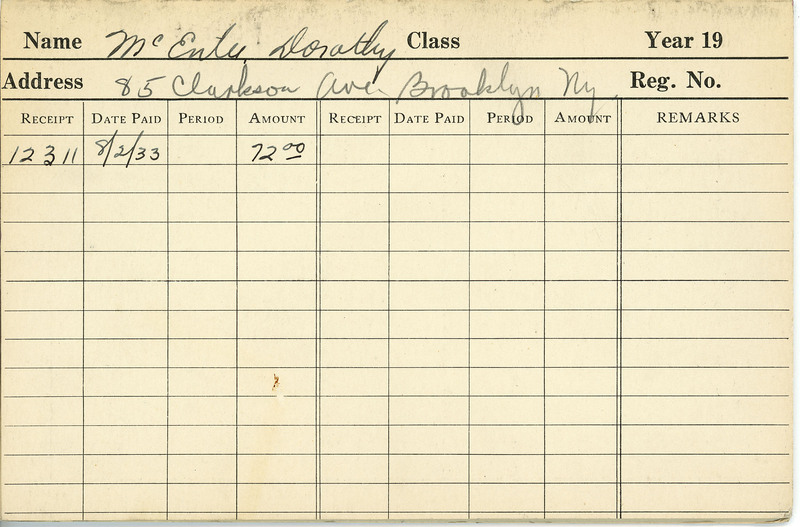 Name McEntee, Dorothy Class Year 19
Address 85 Clarkson Ave. Brooklyn Ny Reg. No.
RECEIPT DATE PAID PERIOD AMOUNT RECEIPT DATE PAID PERIOD AMOUNT REMARKS
12311 8/2/33 72 00